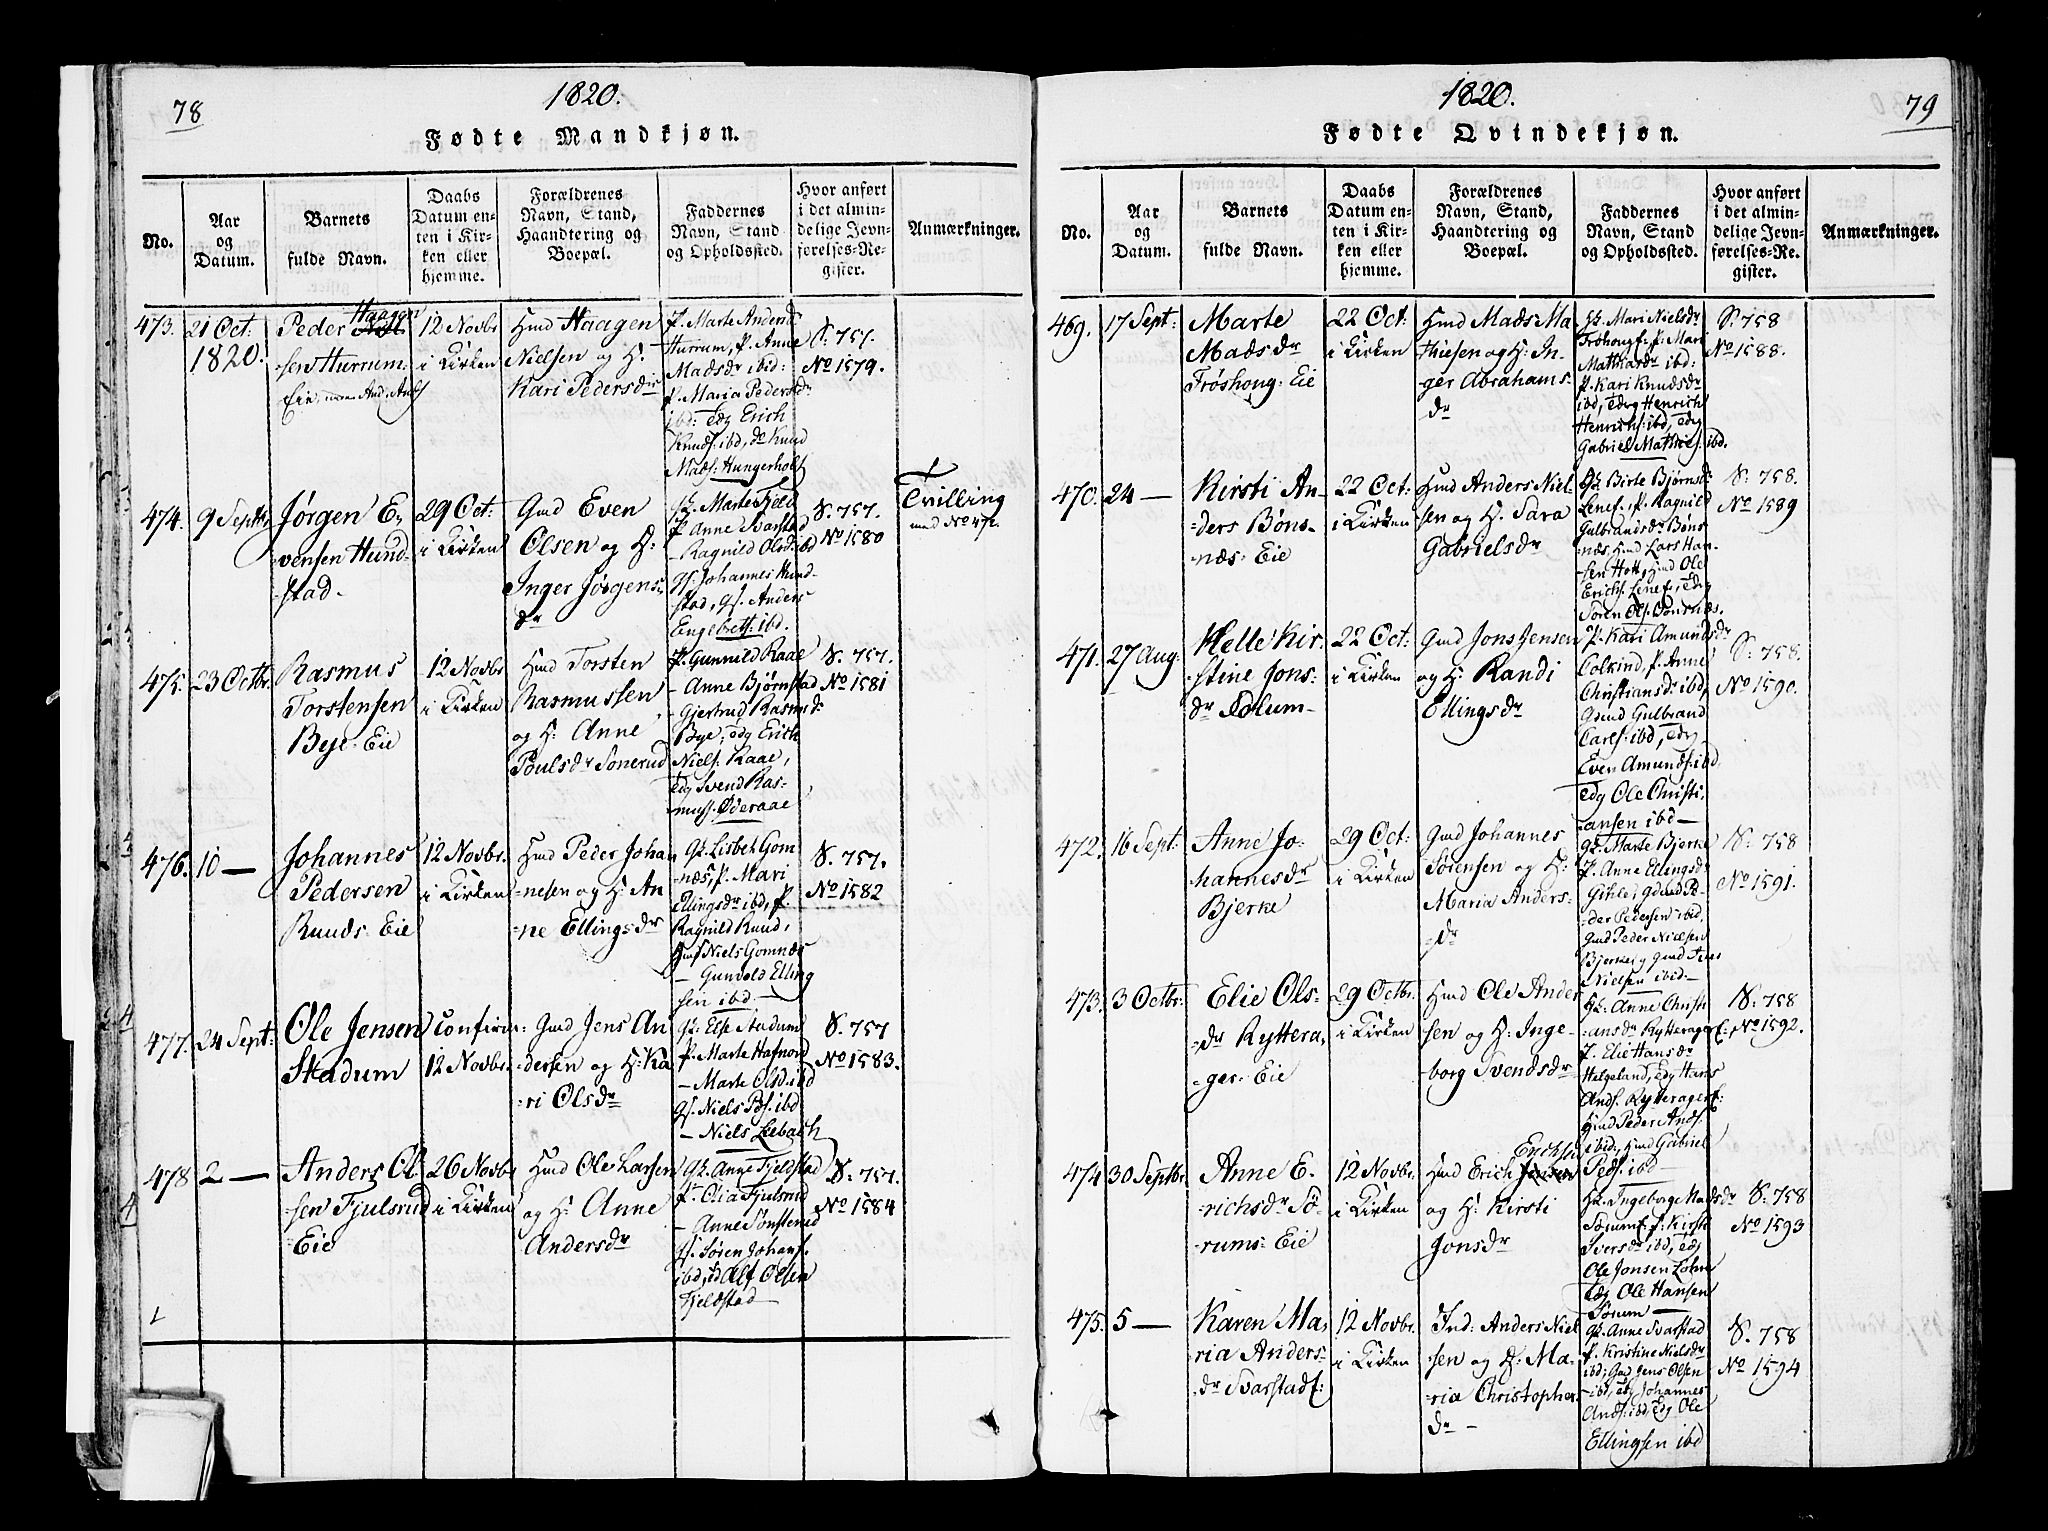 78
1820.
Fødte Mandkjøn.
No.
Aar
og
Datum.
Barnets
fulde Navn.
Daabs
Datum en-
ten i Kir-
ken eller
hjemme.
Forældrenes
Navn, Stand,
Haandtering og
Boepæl.
Faddernes
Navn, Stand
og Opholdssted.
Hvor anført
i det almin-
delige Jevn-
førelses-Re-
gister.
Anmærkninger.
473.
21 Oct:
1820.
Haagen
Peder
sen Hurrum
Eie
12 Novbr
i Kirken
Hmd Haagen
Nielsen og H:
Kari Pedersdr
P. Marte Andersd
Hurrum, P. Anne
Madsdr ibid:
P. Maria Pedersdr
ibd: Edy Erich
Knuds: ibd, do Knud
Mads: Hungerholt
S. 757.
No 1579.
474.
9 Septbr
Jørgen E-
vensen Hund-
stad.
29 Oct:
i Kirken
Gmd Even
Olsen og H:
Inger Jørgens-
dr
Gk. Marte Fjeld
P. Anne Svarstad
- Ragnild Olsdr ibd
Gf. Johannes Hund-
stad, Gf. Anders
Engebrets: ibd.
S. 757.
No 1580
Tvilling
med No 471.
475.
23 Octbr.
Rasmus
Torstensen
Bye- Eie
12 Novbr
i Kirken
Hmd Torsten
Rasmussen
og H: Anne
Poulsdr Sønerud
P. Gunnild Raae
- Anne Bjørnstad
- Gjertrud Rasmusdr
Bye, Edy Erich
Niels: Raae,
Edy Svend Ras-
muss: Øderaae
S. 757.
No 1581
476.
10 —
Johannes
Pedersen
Ruuds- Eie
12 Novbr.
i Kirken
Hmd Peder Johan
-nesen og H: An
-ne Ellingsdr
Gk. Lisbet Gom
-næs, P. Mari
Ellingsdr ibd, P.
Ragnild Ruud,
Hmd Niels Gomnæs
- Gunvald Elling
sen ibd —
S. 757.
No 1582
477.
24 Sept:
Ole Jensen
Stadum
Confirm:
12 Novbr.
Gmd Jens An
-dersen og H: Ka
-ri Olsdr
Gk: Else Stadum
P. Marte Hafnord
- Marte Olsd. ibd
Gf. Niels Ps. ibd
- Niels Leebach
S. 757
No 1583.
478
2 —
Anders Ol
sen Fjulsrud
Eie
26 Novbr
i Kirken
Hmd Ole Larsen
og H: Anne
Andersdr
Gk. Anne Fjeldstad
P. Olia Fjulsrud
- Anne Sønsterud
Gf. Søren Johans.
ibd, Alf Olsen
Fjeldstad
S. 757.
No 1584
79
1820.
Fødte Qvindekjøn.
No.
Aar
og
Datum.
Barnets
fulde Navn.
Daabs
Datum en-
ten i Kir-
ken eller
hjemme.
Forældrenes
Navn, Stand,
Haandtering og
Boepæl.
Faddernes
Navn, Stand
og Opholdssted.
Hvor anført
i det almin-
delige Jevn-
førelses-Re-
gister.
Anmærkninger.
469.
17 Sept:
Marte
Madsdr
Frøshoug: Eie
22 Oct:
i Kirken
Hmd Mads Ma
thiesen og H: In-
ger Abrahams-
dr
Gk. Mari Nielsdr
Frøhoug: P. Mari
Mathiasdr ibid:
P. Kari Knudsdr
ibd, Edy Henrich
Henrichs: ibd, Edy
Gabriel Mathies: ibd.
S. 758
No 1588.
470.
24 —
Kirsti An-
-ders Bøns-
næs: Eie
22 Oct:
i Kirken
Hmd Anders Niel-
sen og H: Sara
Gabrielsdr
Gk. Birte Bjørnsdr
Lenef. P. Ragnild
Gulbrandsdr Bøns
-næs, Hmd Lars Han-
sen Hott, Hmd Ole
Erichs. Lenef., Edy
Søren Ols: Bønsnæs.
S. 758.
No 1589
471.
27 Aug:
Helle Kir-
stine Jons-
dr Solum-
22 Oct:
i Kirken
Gmd Jons Jensen
og H: Randi
Ellingsdr
P. Kari Amundsdr
Colkind, P. Anne
Christiansdr ibid,
Gmd Gulbrand
Carls: ibd, Edy
Even Amunds: ibd
Edy Ole Christi,
ansen ibd —
S. 758.
No 1590.
472.
16 Sept:
Anne Jo-
hannesdr
Bjerke
29 Oct:
i Kirken
Gmd Johannes
Sørensen og H:
Maria Anders-
-dr
Gk: Marte Bjerke
P. Anne Ellingsdr
Gihle, Gmd Pe-
-der Pedersen ibid,
Gmd Peder Nielsen
Bjerke, Gmd Jens
Nielsen ibid —
S. 758
No 1591.
473.
3 Octbr:
Elie Ols-
-dr Ryttera,
-ger: Eie
29 Octbr.
i Kirken
Hmd Ole Ander
sen og H: Inge-
borg Svendsdr
Gk. Anne Christi
-ansdr Rytterager
P. Elie Hansdr
Helgeland, Edy Hans
Ands. Rytteragerf:
Hmd Peder Ands.
ibid, Hmd Gabriel
Peds: ibd —
S. 758
No 1592.
474
30 Septbr.
Anne E-
-richsdr Sø-
-rums: Eie
12 Novbr.
i Kirken
Erichsen
Hmd Erich
og H: Kirsti
Jonsdr
Hk. Ingeborge Madsdr
Sørumf. P. Kirsti
Sversdr ibd, Edy
Ole Jonsen Lohre
Edy Ole Hansen
Sørum —
S. 758
No 1593
475.
5 —
Karen Ma,
ria Anders-
dr Svarstadf:
12 Novbr.
i Kirken
Ind: Anders Niel
sen og H: Ma-
ria Christophers-
dr -
Gk. Anne Svarstad
P. Kristine Nielsdr
ibd, Gmd Jens Olsen
ibd, Edy Johannes
Ands: ibd, Edy Ole
Ellingsen ibd
S. 758
No 1594